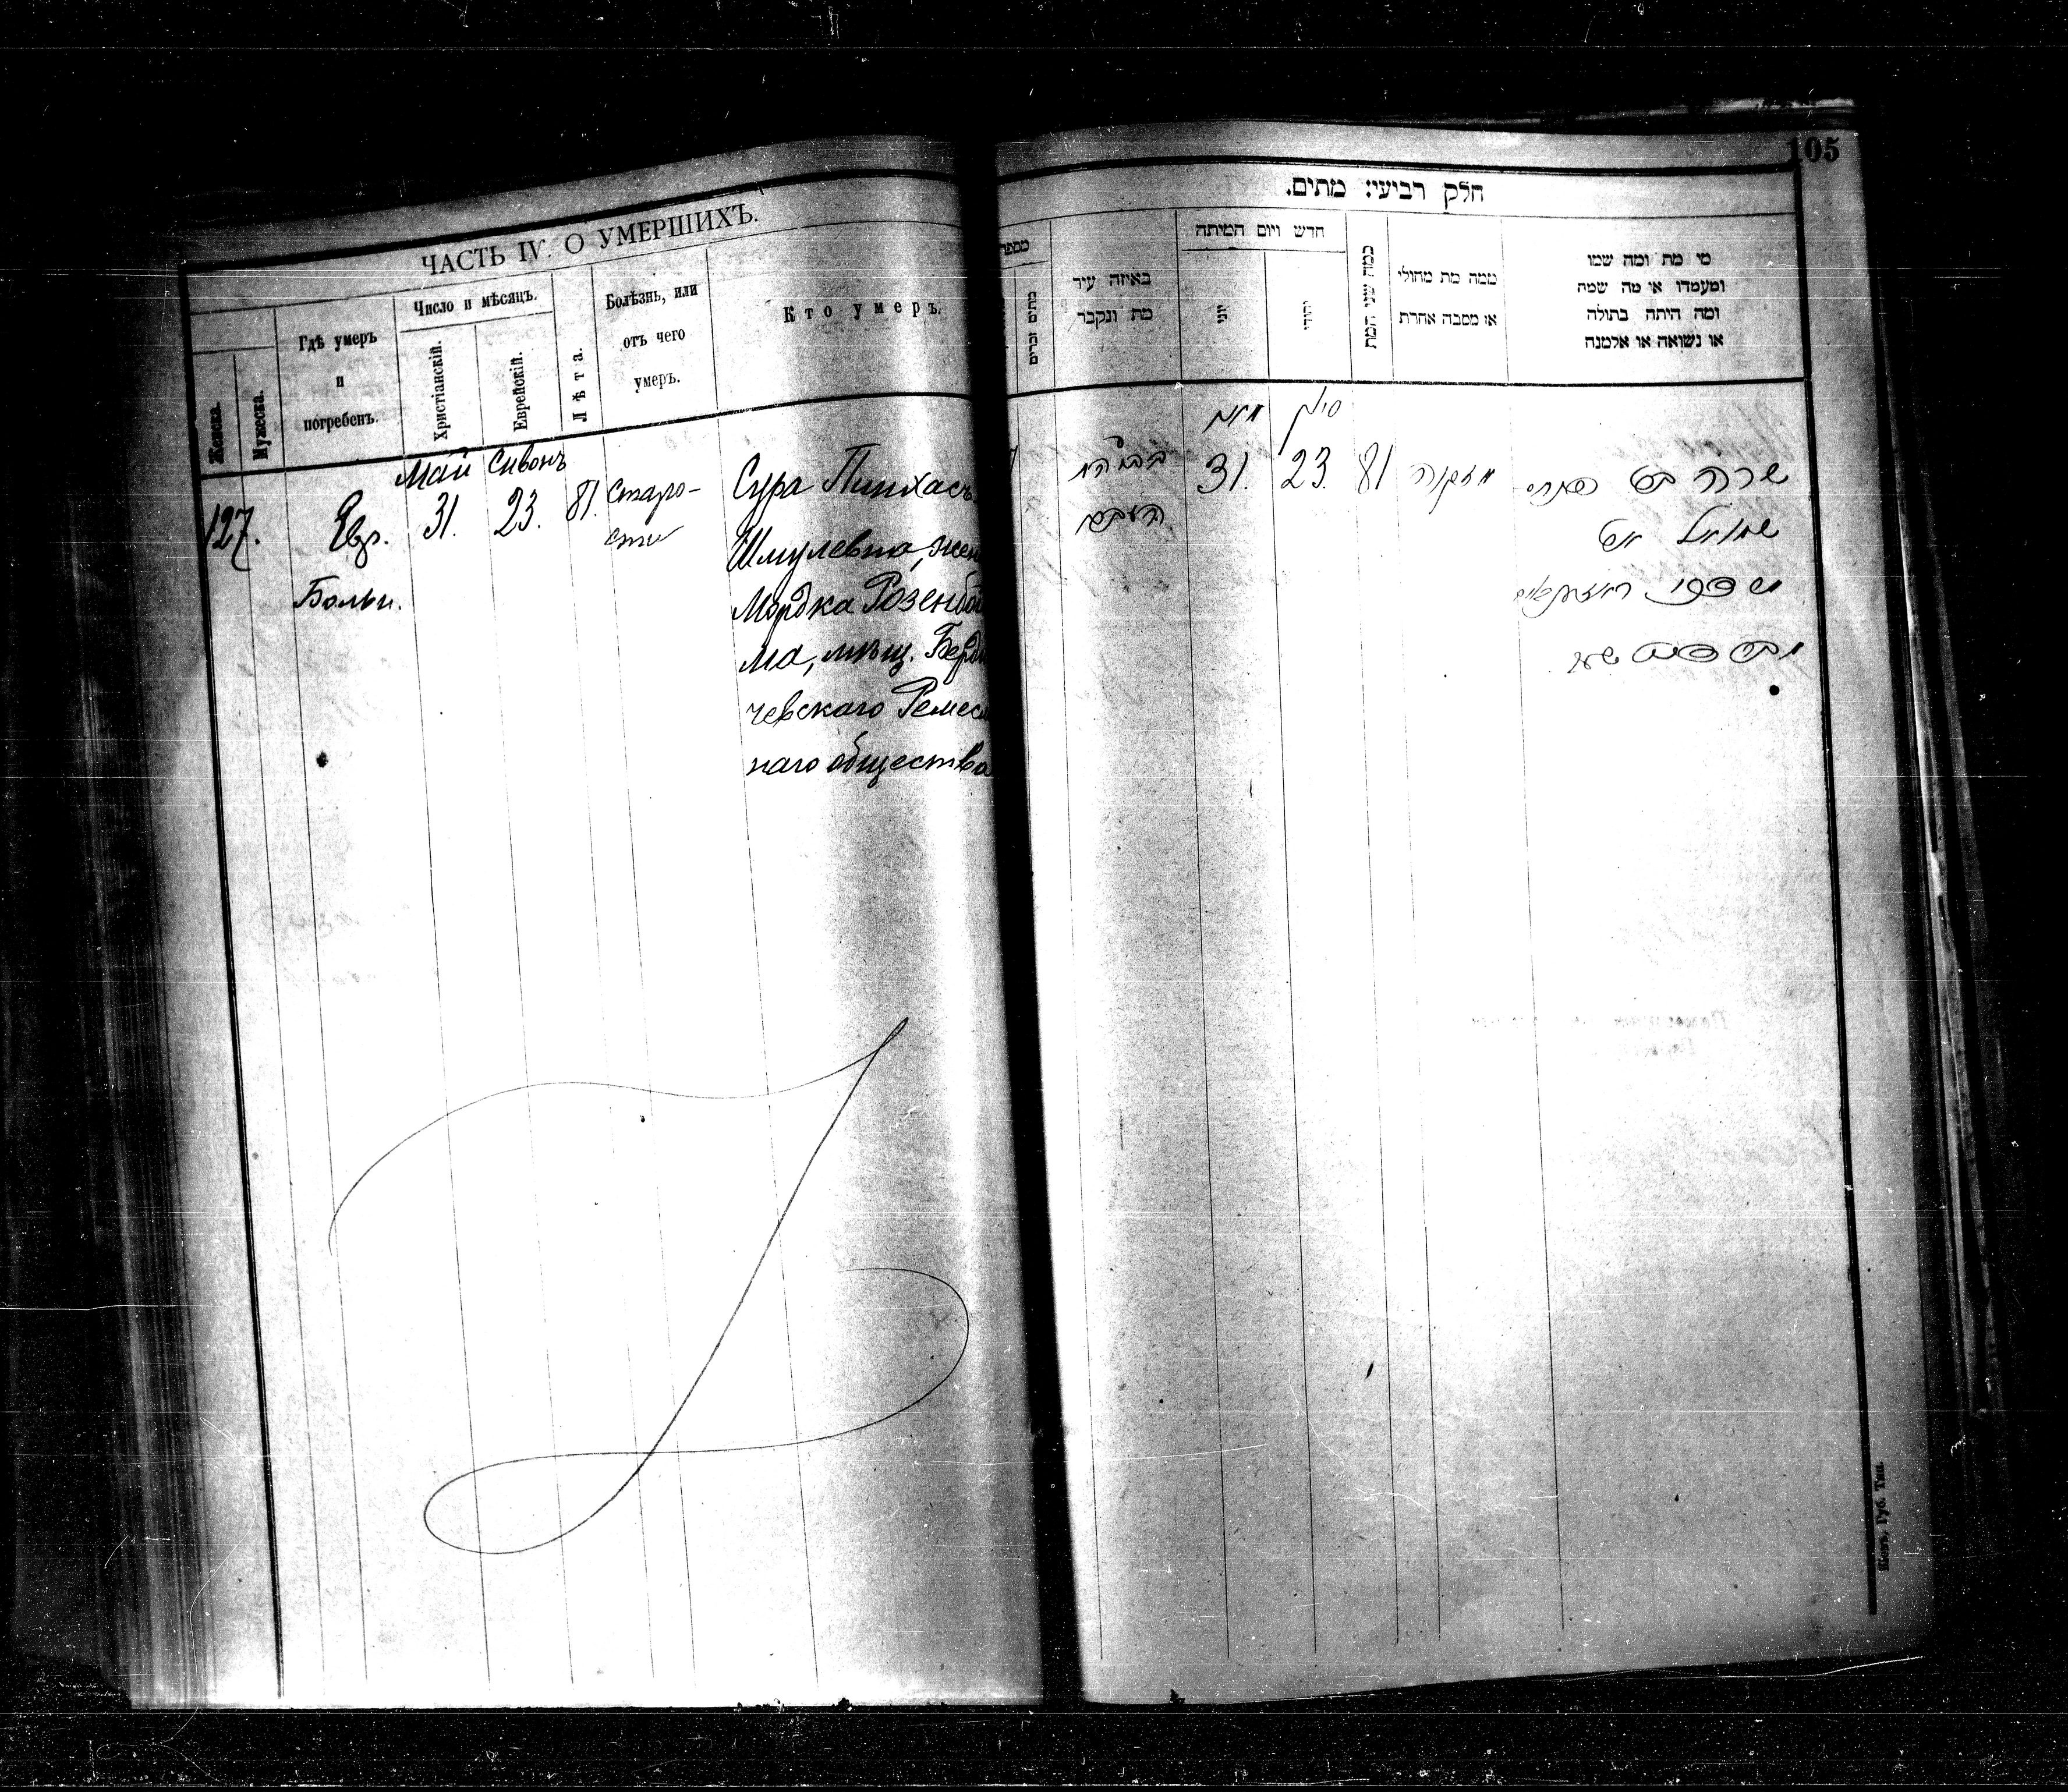 105
ЧАСТЬ IV. О УМЕРШИХЪ.
Женска.
Мужеска.
Гдѣ умеръ
и
погребенъ.
Число и мѣсяцъ.
Христіанскій.
Еврейскій.
Лѣта.
Болѣзнь, или
отъ чего
умеръ.
Кто умеръ.
Май Сивонъ
127. Евр. 31. 23. 81. Старо-
сти
Больн.
Сура Пинхасъ
Шмулевна, жен
Мордка Розенба
ма, мѣщ. Берди
чевскаго Ремес
наго общества
חלק רביעי: מתים.
מספר
זכרים
באיזה עיר
מת ונקבר
חדש ויום המיתה
יוני
יהודי
כמה שני המת
ממה מת מחולי
או מסבה אחרת
מי מת ומה שמו
ומעמדו או מה שמה
ומה היתה בתולה
או נשואה או אלמנה
סיון
31. 23. 81 מזקנה שרה בת
שמואל
Губ. Тип.